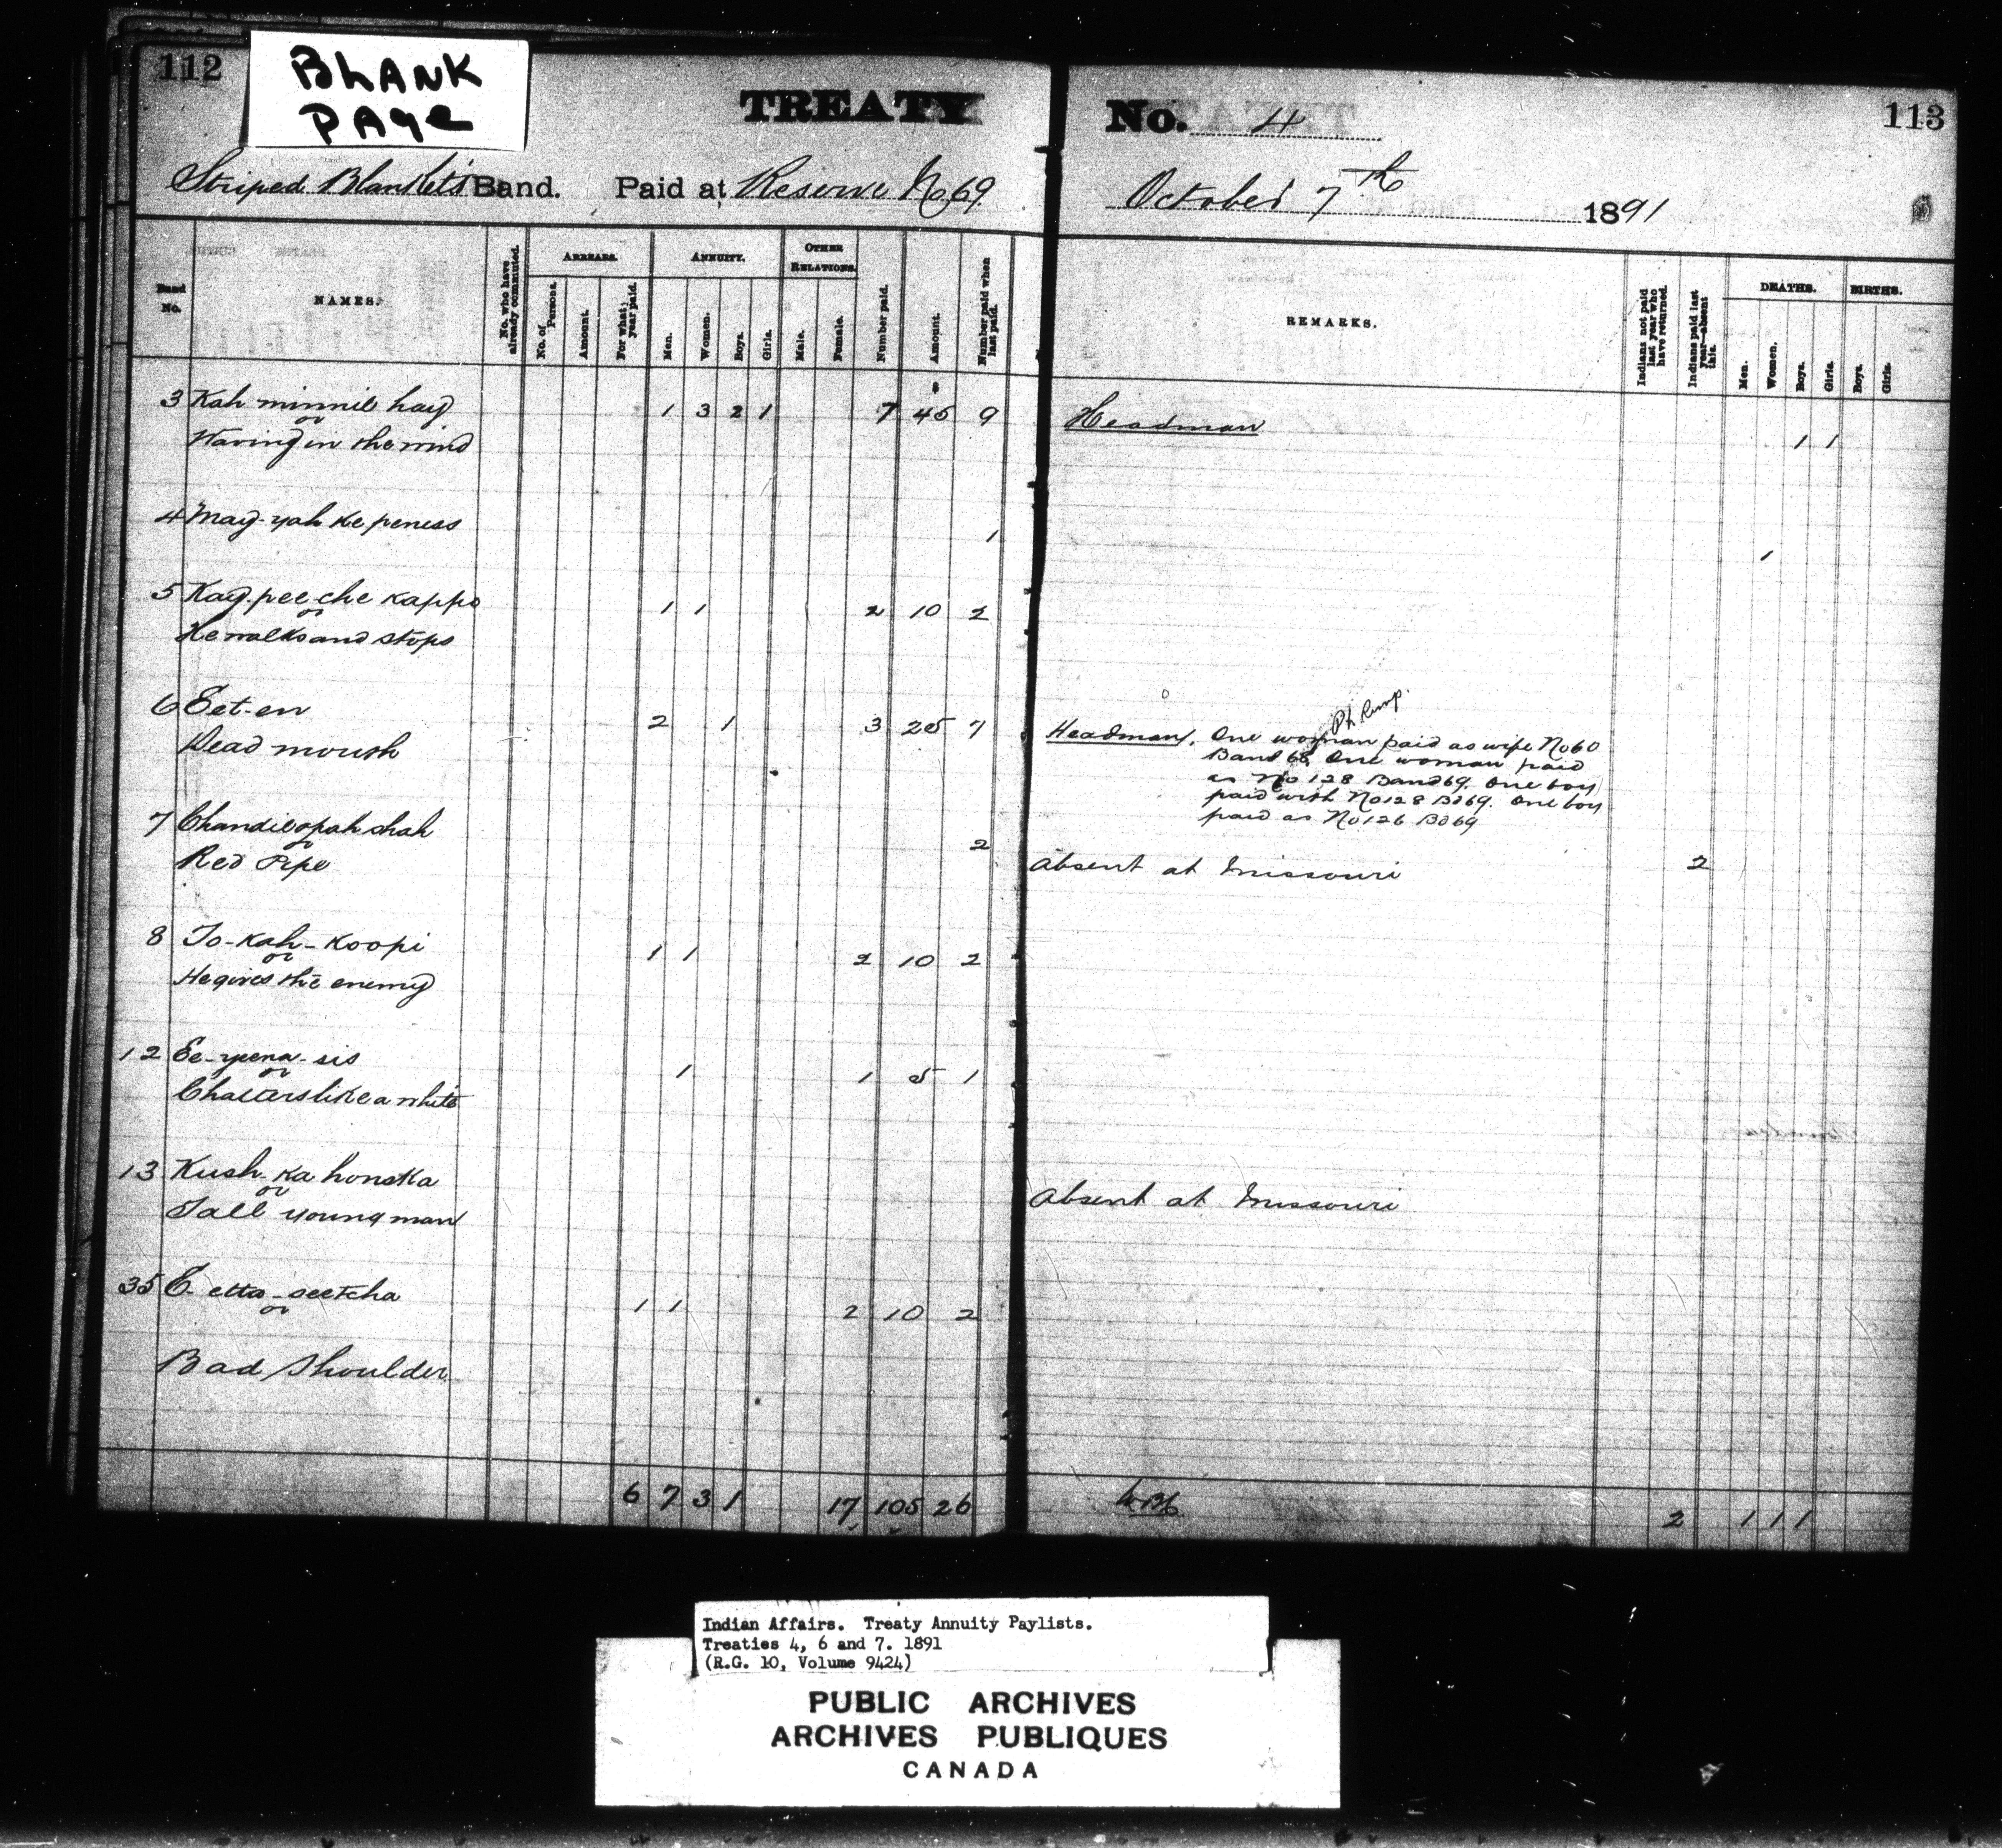 112
BLANK
PAGE
TREATY
No. 4
113
Striped Blanket's Band. Paid at Reserve No 69
October 7th 1891
Band No.
NAMES.
No. who have already commuted.
ARREARS.
No. of Persons.
Amount.
For what year paid.
ANNUITY.
Men.
Women.
Boys.
Girls.
OTHER RELATIONS.
Male.
Female.
Number paid.
Amount.
Number paid when last paid.
REMARKS.
Indians not paid last year who have returned.
Indians paid last year—absent this.
DEATHS.
Men.
Women.
Boys.
Girls.
BIRTHS.
Boys.
Girls.
3 Kah minnie hay 1 3 2 1 7 45 9 Headman
or
Waving in the wind 1 1
4 May-yah ke peness 1
1
5 Kay-pee-che kappo 1 1 2 10 2
or
He walks and stops
6 Eet-en 2 1 3 25 7 Headman. One woman paid as wife No 60
Dead mouth Band 68 One woman paid
as No 128 Band 69. One boy
paid with No 128 Bd 69. One boy
paid as No 126 Bd 69
7 Chandieopah shah 2
or
Red Pipe Absent at Missouri 2
8 To-kah-koopi 1 1 2 10 2
or
He gives the enemy
12 Ee-yeena-sis 1 1 5 1
or
Chatters like a white
13 Kush-ka honska
or
Tall young man Absent at Missouri
35 E-etta-seetcha 1 1 2 10 2
or
Bad Shoulder
6 7 3 1 17 105 26 2 1 1 1
Indian Affairs. Treaty Annuity Paylists.
Treaties 4, 6 and 7. 1891
(R.G. 10, Volume 9424)
PUBLIC ARCHIVES
ARCHIVES PUBLIQUES
CANADA